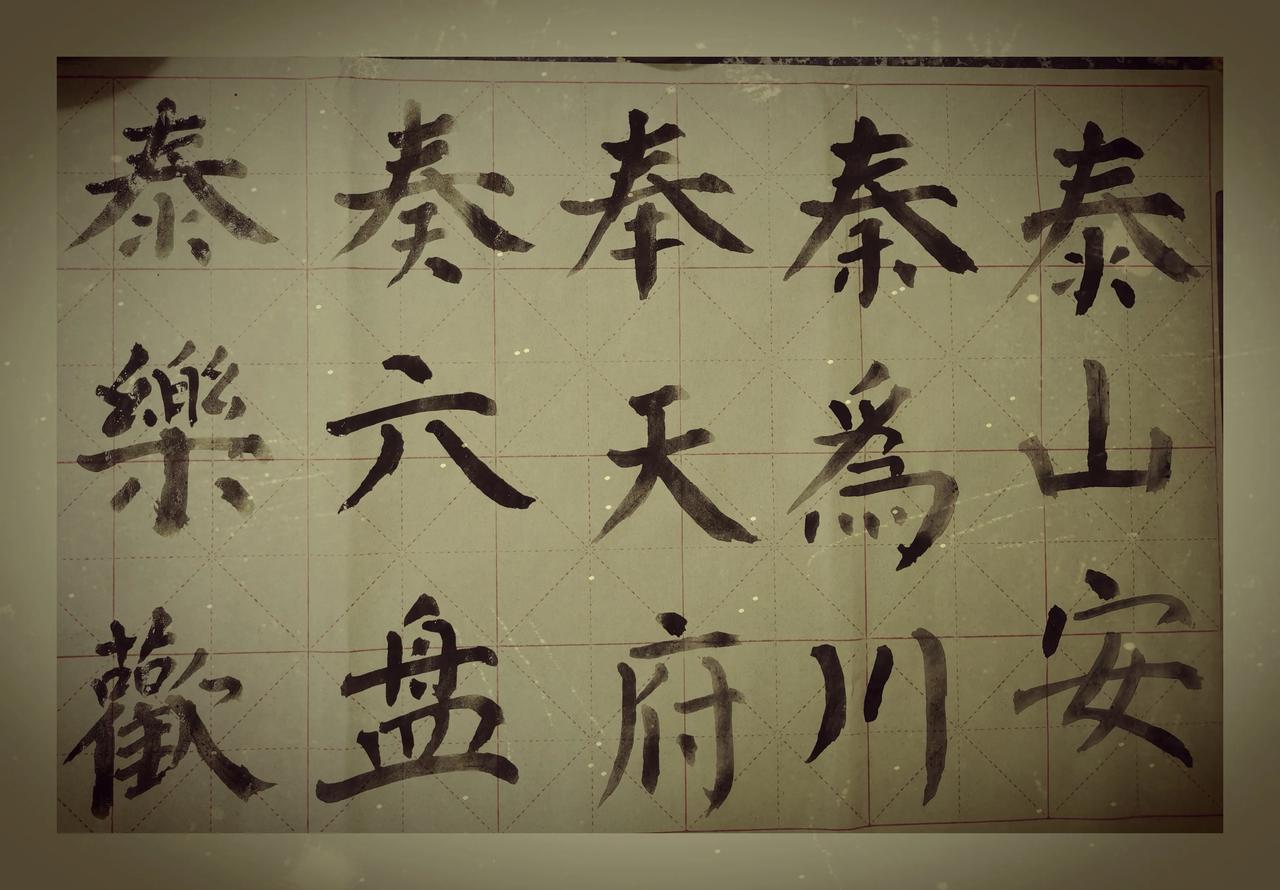 泰山安
秦為川
奉天府
奏六盘
泰樂歡